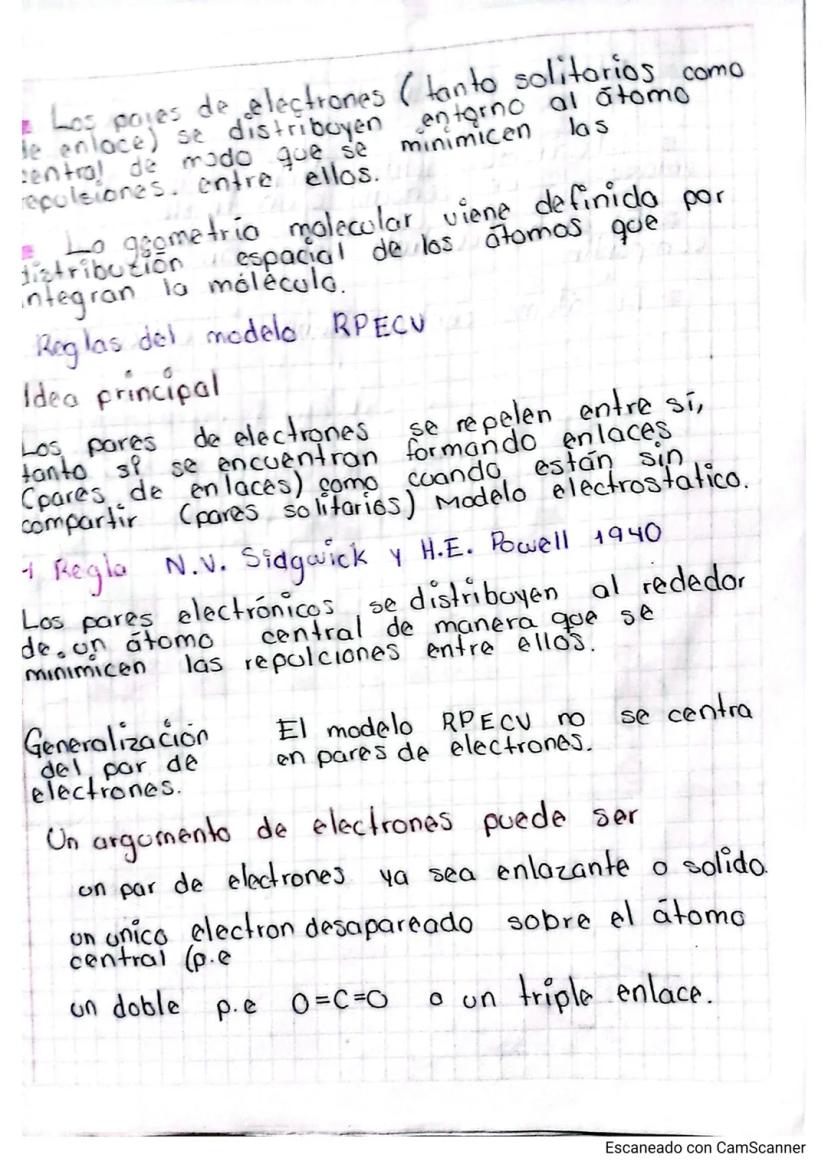 Los pares de electrones (tanto solitarios como
de enlace) se distribuyen entorno al átomo
central de modo que se minimicen las
repulsiones. entre ellos.
La geometría molecular viene definida por
distribución espacial de los átomos que
integran la molécula.
Reglas del modelo RPECV
Idea principal
Los pares de electrones se repelen entre sí,
tanto si se encuentran formando enlaces
(pares de enlaces) como cuando están sin
compartir (pares solitarios) Modelo electrostatico.
1 Regla N.V. Sidgwick y H.E. Powell 1940
Los pares electrónicos se distribuyen al rededor
de un átomo central de manera que se
minimicen las repulciones entre ellos.
Generalización El modelo RPECV no se centra
del par de en pares de electrones.
electrones.
Un argumento de electrones puede ser
un par de electrones ya sea enlazante o solido.
un unico electron desapareado sobre el átomo
central (p.e
un doble p.e O=C=O o un triple enlace.
Escaneado con CamScanner